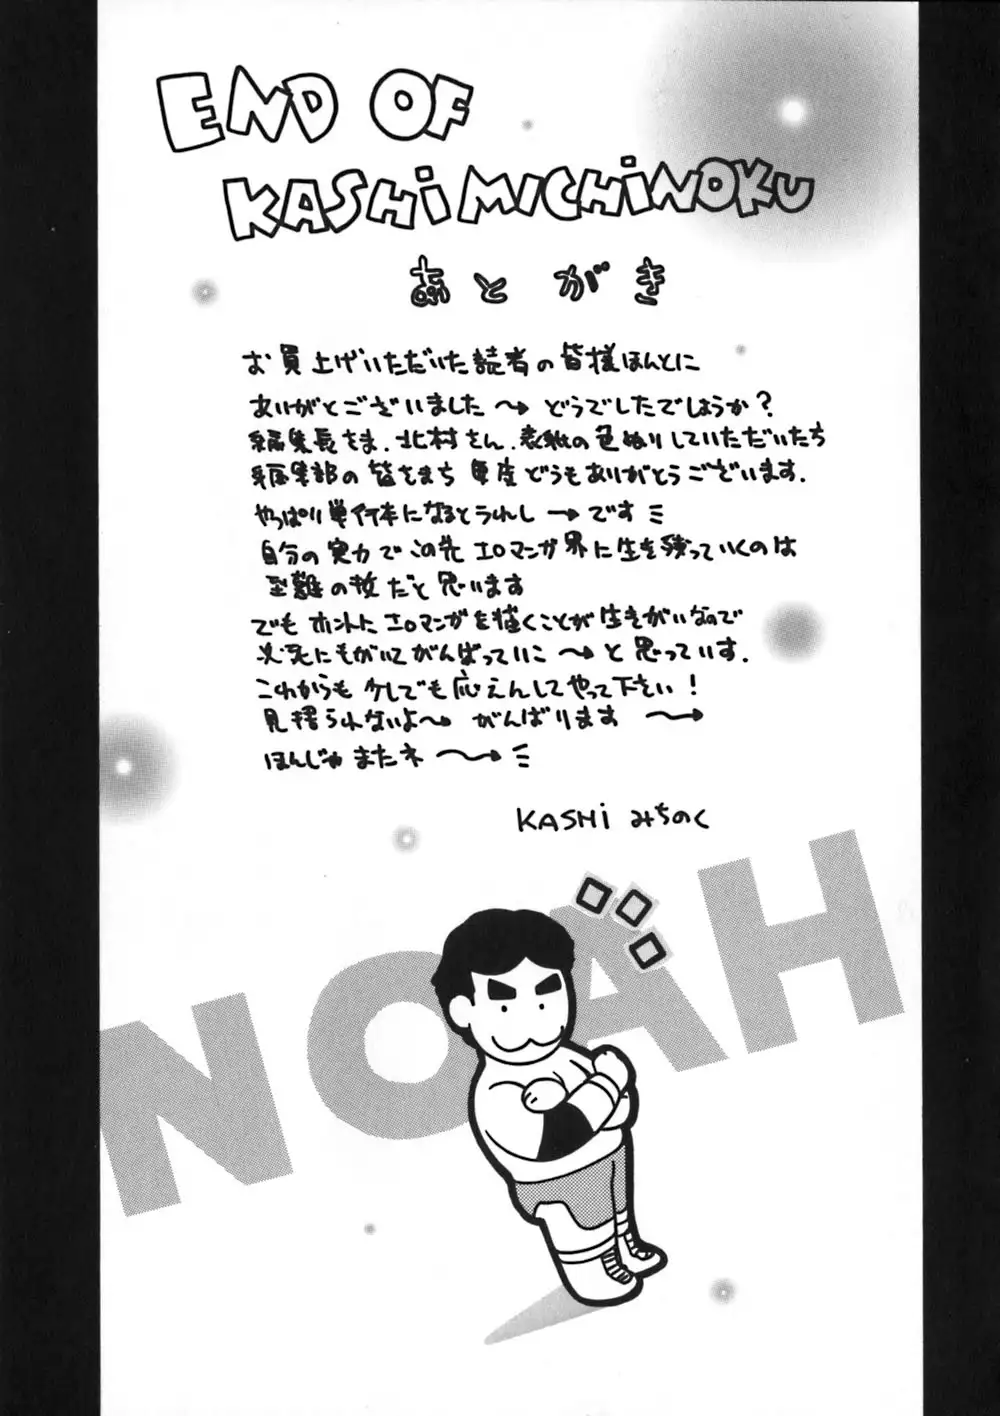 END OF
KASHiMICHiNOKU
あとがき
お買上げいただいた読者の皆様ほんとに
ありがとございました〜どうでしたでしょうか?
編集長さま.北村さん.表紙の色ぬりしていただいたち
編集部の皆さまち 毎度どうもありがとうございます.
やっぱり単行本になるとうれし〜です
自分の実力でこの先エロマンガ界に生き残っていくのは
至難の技だと思います
でもホントにエロマンガを描くことが生きがいなので
必死にもがいてがんばっていこ〜と思っていす.
これからも少しでも応えんしてやって下さい!
見捨られないよ〜がんばります〜
ほんじゃまたネ〜
KASHi みちのく
NOAH